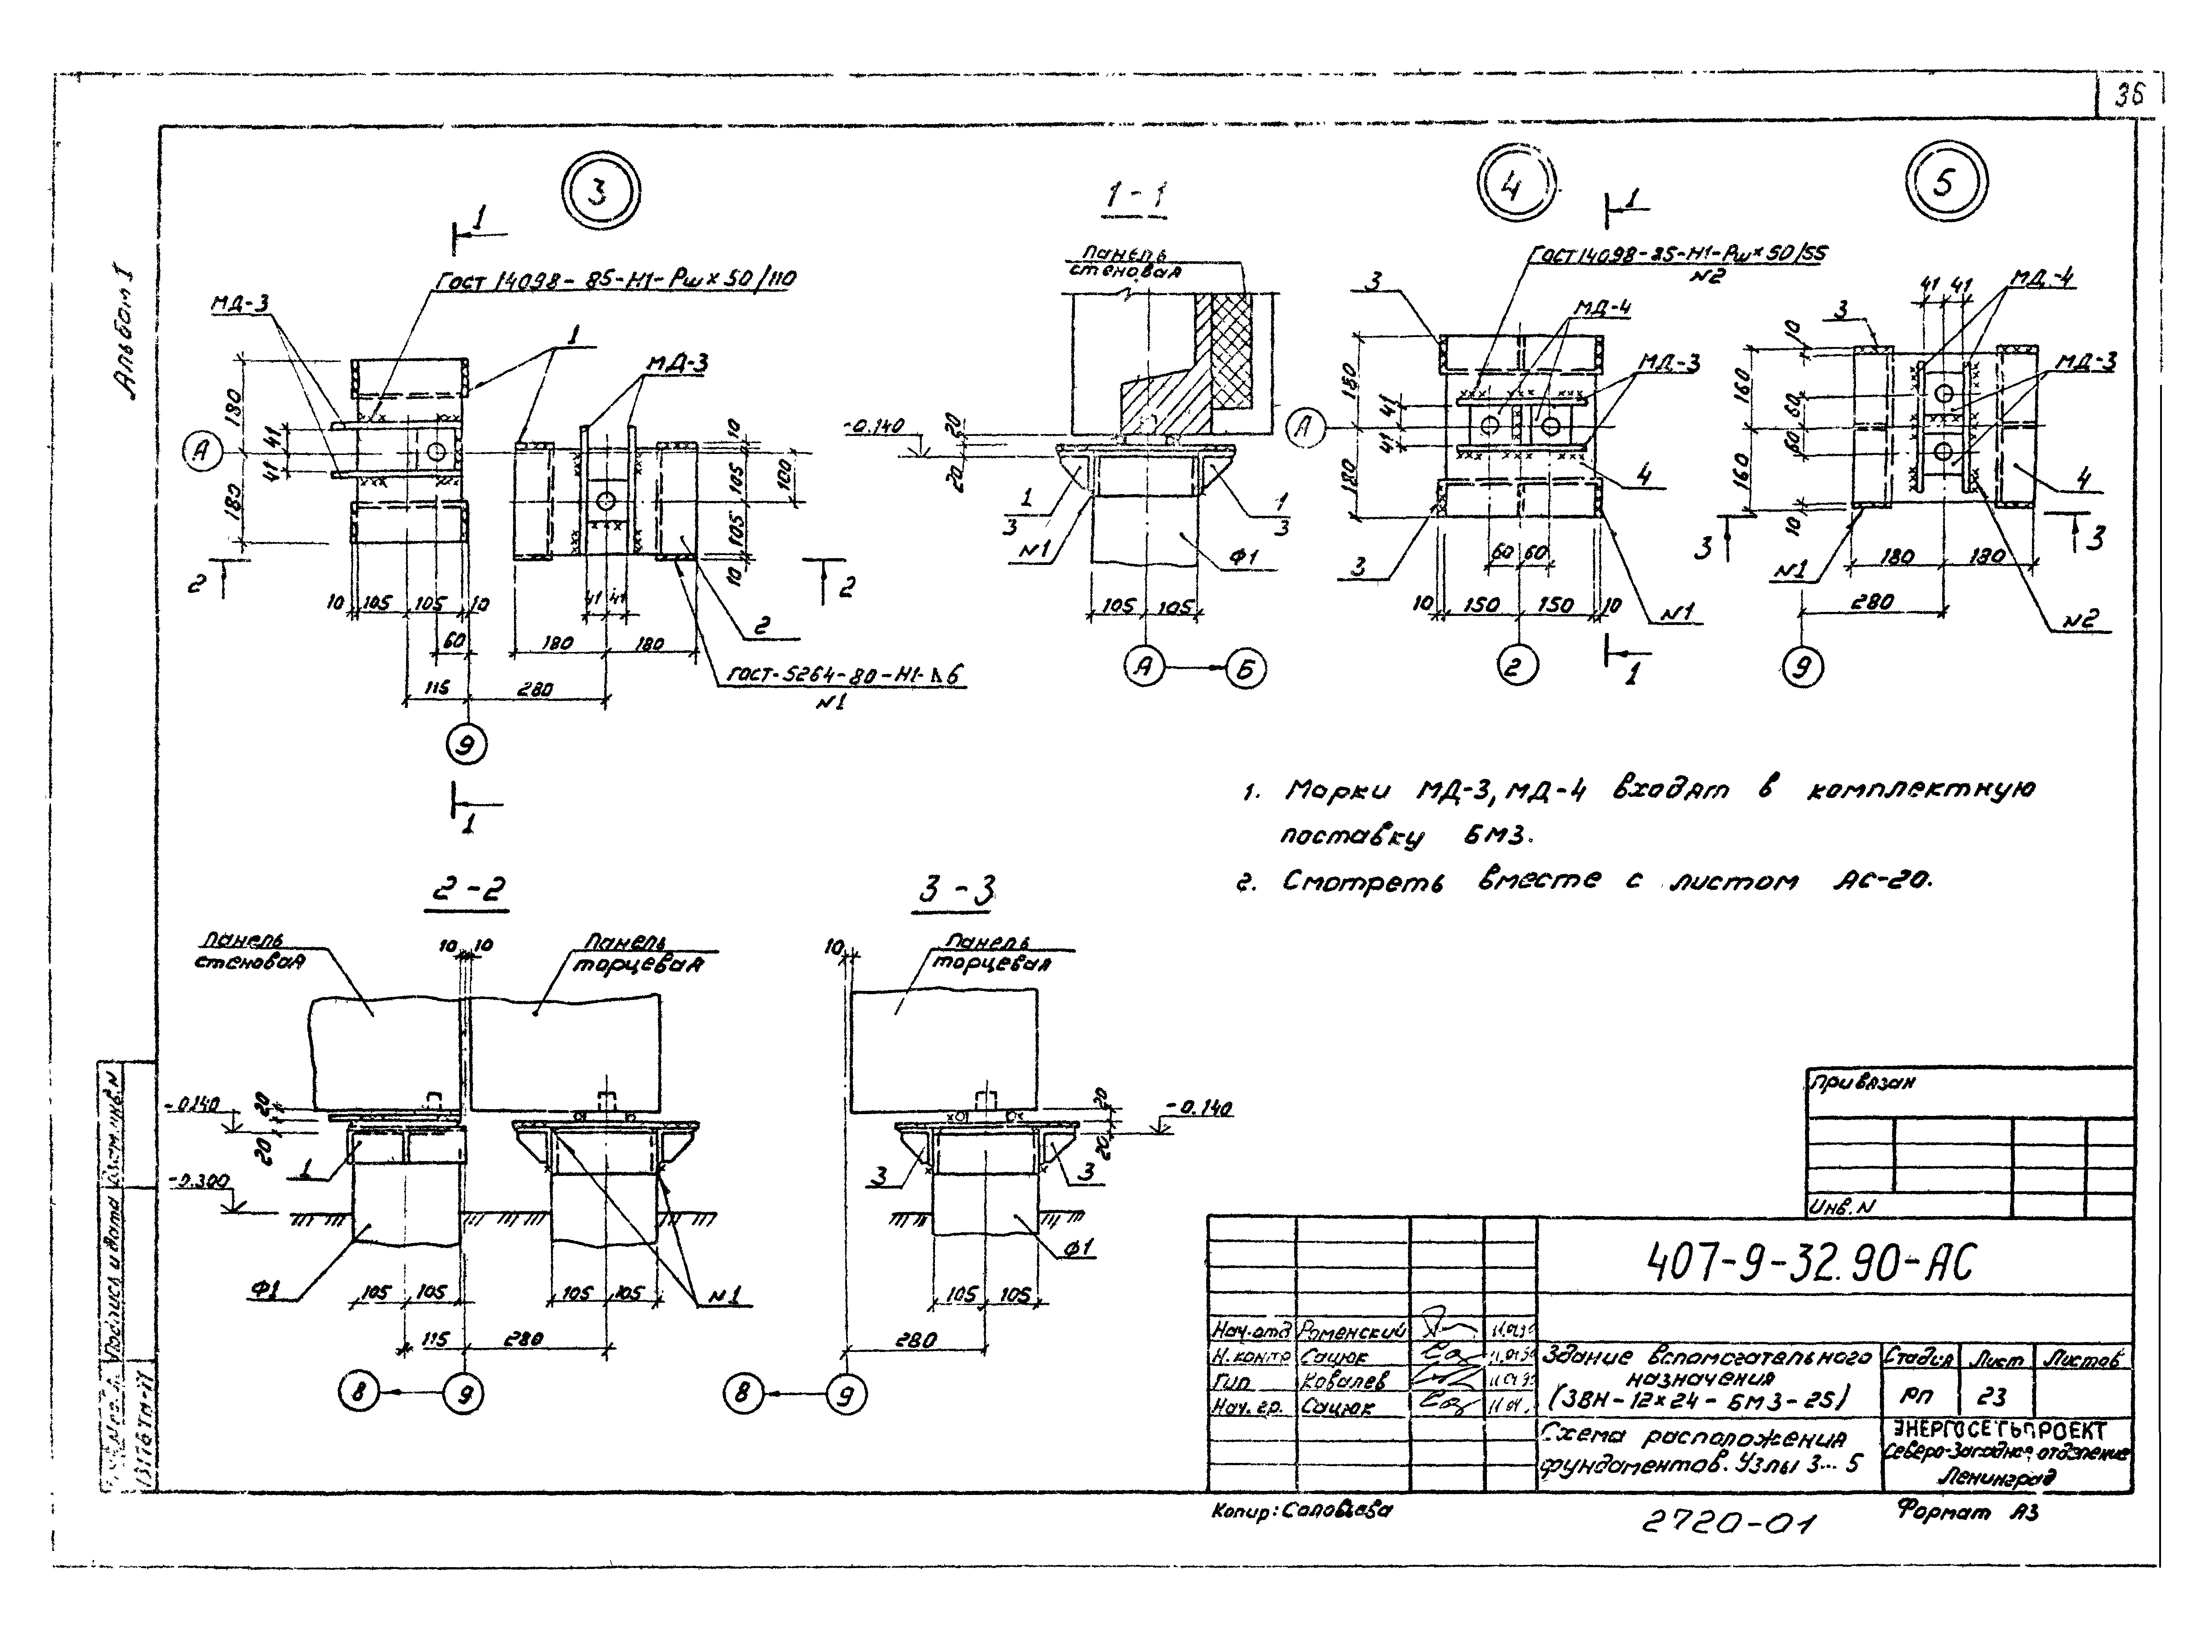 36
Альбом I
3
1
ГОСТ 14098-85-Н1-Рш×50/110
МД-3
1
МД-3
180
41
41
180
А
10
105
105
10
100
2
2
10
105
105
10
60
41
41
180
180
2
115
280
ГОСТ-5264-80-Н1-⊿6
N1
9
1
1-1
Панель
стеновая
-0.140
20
20
1
3
1
3
N1
Ф1
105
105
А
Б
4
1
ГОСТ 14098-85-Н1-Рш×50/55
N2
3
МД-4
МД-3
180
41
41
180
А
4
3
60
60
10
150
150
10
N1
2
1
5
41
41
МД-4
3
10
МД-3
160
60
60
160
10
4
3
3
N1
180
180
280
N2
9
1. Марки МД-3, МД-4 входят в комплектную
поставку БМЗ.
2. Смотреть вместе с листом АС-20.
2-2
Панель
стеновая
10
10
Панель
торцевая
-0.140
20
20
1
-0.300
Ф1
105
105
105
105
N1
115
280
8
9
3-3
10
Панель
торцевая
20
-0.140
20
3
3
Ф1
105
105
280
8
9
Привязан
Инв. N
407-9-32.90-АС
Нач.отд Роменский
Н.контр Сацюк
Гип Ковалев
Нач. гр. Сацюк
Здание вспомогательного
назначения
(ЗВН-12×24-БМЗ-25)
Стадия Лист Листов
РП 23
Схема расположения
фундаментов. Узлы 3...5
ЭНЕРГОСЕТЬПРОЕКТ
Северо-Западное отделение
Ленинград
Копир: Соловьева
2720-01
Формат А3
Взам.инв.N
Подпись и дата
13176тм-II